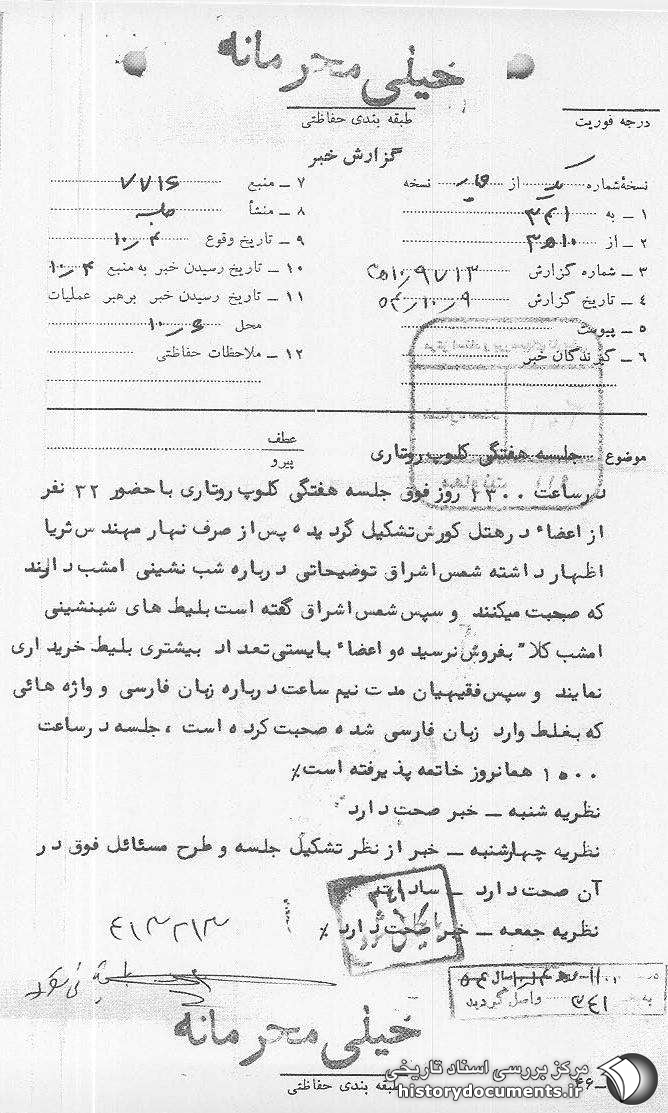 خیلی محرمانه
طبقه بندی حفاظتی
درجه فوریت
گزارش خبر
نسخهٔ شماره یک از چهار نسخه
۱ ـ به ۳۴۱
۲ ـ از
۳ ـ شماره گزارش
۴ ـ تاریخ گزارش ۵۴/۱۰/۹
۵ ـ پیوست
۶ ـ گیرندگان خبر
۷ ـ منبع ۷۷۱۶
۸ ـ منشأ جلسه
۹ ـ تاریخ وقوع ۱۰/۴
۱۰ ـ تاریخ رسیدن خبر به منبع ۱۰/۴
۱۱ ـ تاریخ رسیدن خبر برهبر عملیات
محل ۱۰/۶
۱۲ ـ ملاحظات حفاظتی
موضوع جلسه هفتگی کلوپ روتاری
عطف
پیرو
درساعت ۱۳۰۰ روز فوق جلسه هفتگی کلوپ روتاری با حضور ۳۲ نفر
از اعضاء در هتل کورش تشکیل گردیده پس از صرف نهار مهندس ثریا
اظهار داشته شمس اشراق توضیحاتی درباره شب نشینی امشب دارند
که صحبت میکنند و سپس شمس اشراق گفته است بلیط های شبنشینی
امشب کلا" بفروش نرسیده و اعضاء بایستی تعداد بیشتری بلیط خریداری
نمایند و سپس فقیهیان مدت نیم ساعت درباره زبان فارسی و واژه هائی
که بغلط وارد زبان فارسی شده صحبت کرده است، جلسه در ساعت
۱۵۰۰ همانروز خاتمه پذیرفته است٪
نظریه شنبه ـ خبر صحت دارد
نظریه چهارشنبه ـ خبر از نظر تشکیل جلسه و طرح مسئائل فوق در
آن صحت دارد ـ سادات
نظریه جمعه ـ خبر صحت دارد ٪
بایگانی شود
به ۳۴۱ واصل گردید
خیلی محرمانه
طبقه بندی حفاظتی
مرکز بررسی اسناد تاریخی
historydocuments.ir